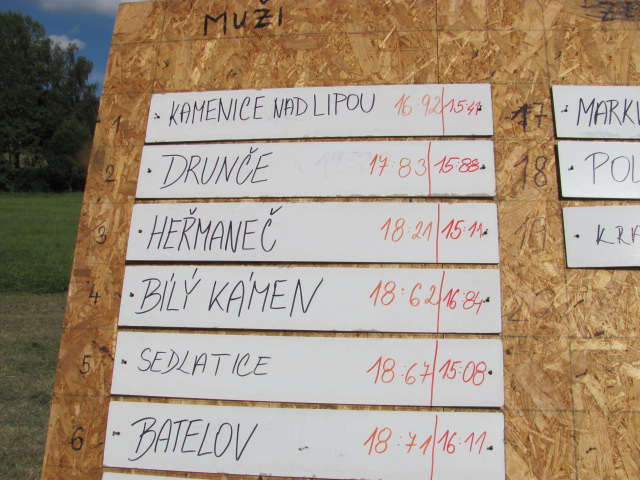 MUŽI
1 KAMENICE NAD LIPOU 16:92 15:41
2 DRUNČE 17:83 15:88
3 HEŘMANEČ 18:21 15:11
4 BÍLÝ KÁMEN 18:62 16:84
5 SEDLATICE 18:67 15:08
6 BATELOV 18:71 16:11
17 MARKV
18 POL
19 KRA
20